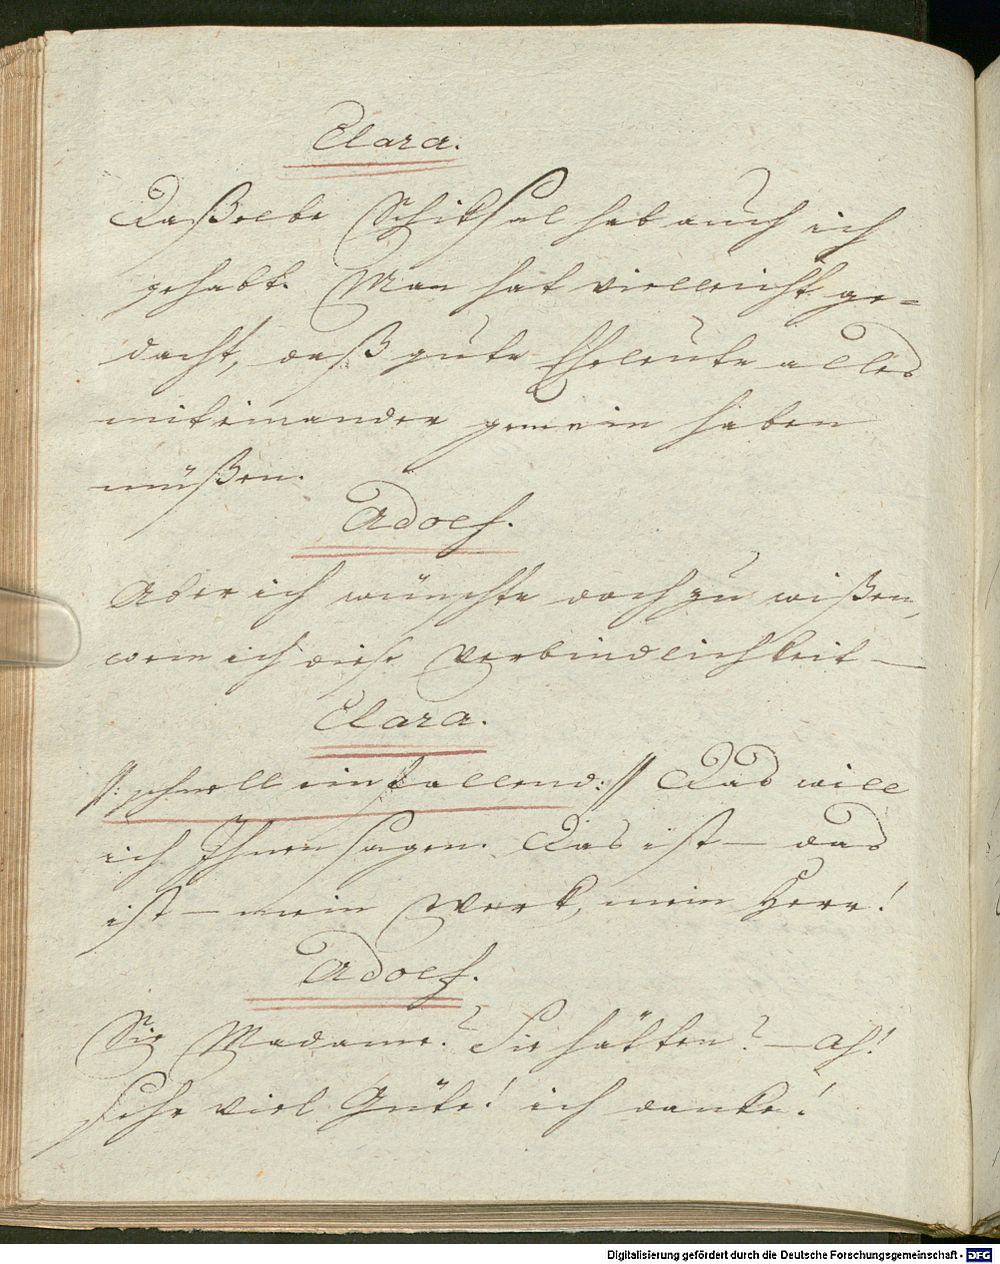 Clara.
Daßelbe Schiksal hab auch ich
gehabt. Man hat vielleicht ge=
dacht, daß gute Eheleute alles
miteinander gemein haben
müßen.
Adolf.
Aber ich wünschte doch zu wißen,
wem ich diese Verbindlichkeit —
Clara.
//: schnell einfallend: // Das will
ich Ihnen sagen. Das ist — das
ist — mein Werk, mein Herr!
Adolf.
Sie Madame? Sie hätten? — Ah!
sehr viel Güte! ich danke!
Digitalisierung gefördert durch die Deutsche Forschungsgemeinschaft - DFG